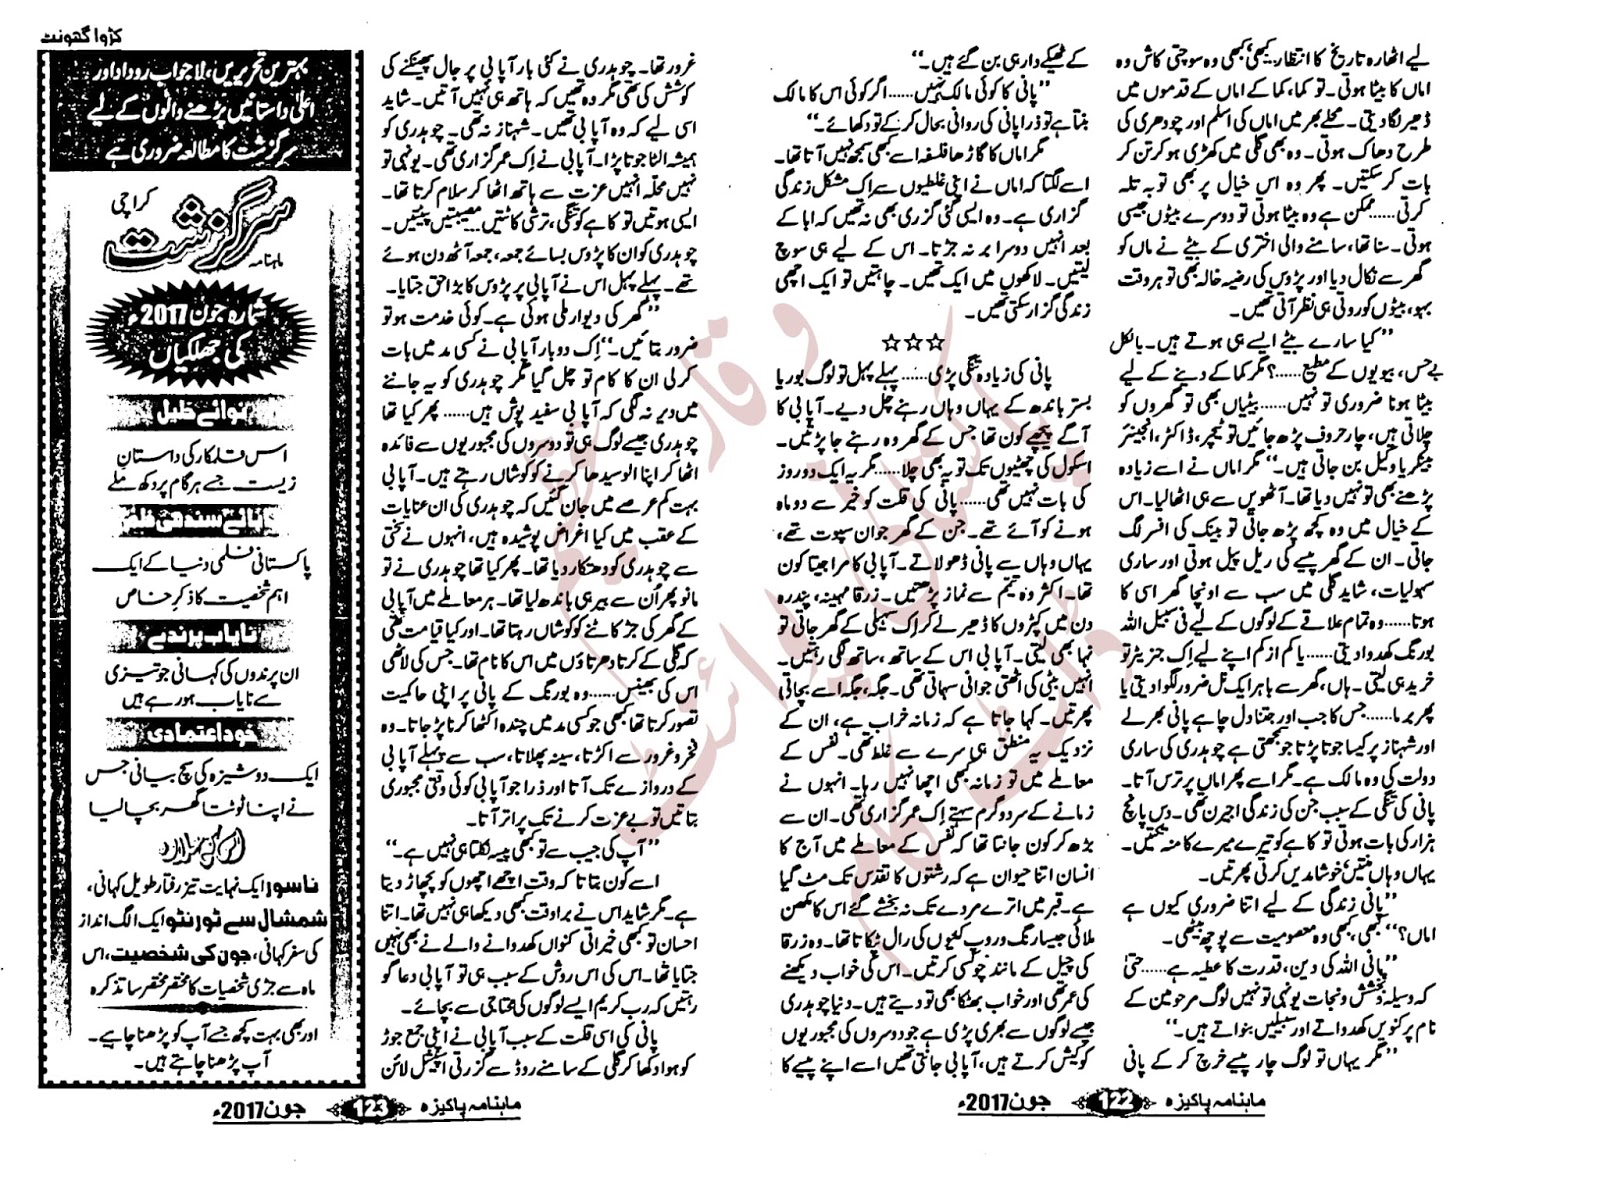 لیے اٹھارہ تاریخ کا انتظار۔ کبھی، کبھی وہ سوچتی کاش وہ
اماں کا بیٹا ہوتی۔ تو کما، کما کے اماں کے قدموں میں
ڈھیر لگا دیتی۔ محلے بھر میں اماں کی اسلم اور چودھری کی
طرح دھاک ہوتی۔ وہ بھی گلی میں کھڑی ہو کر تن کر
بات کر سکتیں۔ پھر وہ اس خیال پر بھی توبہ تلہ
کرتی...... ممکن ہے وہ بیٹا ہوتی تو دوسرے بیٹوں جیسی
ہوتی۔ سنا تھا، سامنے والی اختری کے بیٹے نے ماں کو
گھر سے نکال دیا اور پڑوس کی رضیہ خالہ بھی تو ہر وقت
بہو، بیٹوں کو روتی ہی نظر آتی تھیں۔
”کیا سارے بیٹے ایسے ہی ہوتے ہیں۔ بالکل
بے حس، بیویوں کے مطیع......؟ مگر کما کے دینے کے لیے
بیٹا ہونا ضروری تو نہیں...... بیٹیاں بھی تو گھروں کو
چلاتی ہیں، چار حروف پڑھ جائیں تو ٹیچر، ڈاکٹر، انجینئر
بینکر یا وکیل بن جاتی ہیں۔“ مگر اماں نے اسے زیادہ
پڑھنے بھی تو نہیں دیا تھا۔ آٹھویں سے ہی اٹھا لیا۔ اس
کے خیال میں وہ کچھ پڑھ جاتی تو بینک کی افسر لگ
جاتی۔ ان کے گھر پیسے کی ریل پیل ہوتی اور ساری
سہولیات، شاید گلی میں سب سے اونچا گھر اسی کا
ہوتا...... وہ تمام علاقے کے لوگوں کے لیے فی سبیل اللہ
بورنگ کھدوا دیتی...... یا کم از کم اپنے لیے اک جنریٹر تو
خرید ہی لیتی۔ ہاں، گھر سے باہر ایک نل ضرور لگوا دیتی یا
پھر برما...... جس کا جب اور جتنا دل چاہے پانی بھر لے
اور شہناز پر کیسا جوتا پڑتا جو سمجھتی ہے چوہدری کی ساری
دولت کی وہ مالک ہے۔ مگر اسے پھر اماں پر ترس آتا۔
پانی کی تنگی کے سبب جن کی زندگی اجیرن تھی۔ دس پانچ
ہزار کی بات ہوتی تو کاہے کو تیرے میرے کا منہ تکتیں۔
یہاں وہاں منتیں خوشامدیں کرتی پھرتیں۔
”پانی زندگی کے لیے اتنا ضروری کیوں ہے
اماں؟“ کبھی، کبھی وہ معصومیت سے پوچھ بیٹھی۔
”پانی اللہ کی دین، قدرت کا عطیہ ہے...... حتیٰ
کہ وسیلہ بخشش و نجات یونہی تو نہیں لوگ مرحومین کے
نام پر کنویں کھدواتے اور سبیلیں بنواتے ہیں۔“
”مگر یہاں تو لوگ چار پیسے خرچ کر کے پانی
کے ٹھیکے دار ہی بن گئے ہیں۔“
”پانی کا کوئی مالک نہیں...... اگر کوئی اس کا مالک
بنتا ہے تو ذرا پانی کی روانی بحال کر کے تو دکھائے۔“
مگر اماں کا گاڑھا فلسفہ اسے کبھی سمجھ نہیں آتا تھا۔
اسے لگتا کہ اماں نے اپنی غلطیوں سے اک مشکل زندگی
گزاری ہے۔ وہ ایسی گئی گزری بھی نہ تھیں کہ ابا کے
بعد انہیں دوسرا بر نہ جڑتا۔ اس کے لیے ہی سوچ
لیتیں۔ لاکھوں میں ایک تھیں۔ چاہتیں تو ایک اچھی
زندگی گزار سکتی تھیں۔
☆☆☆
پانی کی زیادہ تنگی بڑی...... پہلے پہل تو لوگ بوریا
بستر باندھ کے یہاں وہاں رہنے چل دیے۔ آپا بی کا
آگے پیچھے کون تھا جس کے گھر وہ رہنے جا پڑتیں۔
اسکول کی چھٹیوں تک تو یہ بھی چلا...... مگر یہ ایک دو روز
کی بات نہیں تھی...... پانی کی قلت کو خیر سے دو ماہ
ہونے کو آئے تھے۔ جن کے گھر جوان سپوت تھے،
یہاں وہاں سے پانی ڈھولاتے۔ آپا بی کا مرا جیتا کون
تھا۔ اکثر وہ تیمم سے نماز پڑھتیں۔ زرقا مہینہ، پندرہ
دن میں کپڑوں کا ڈھیر لے کر اک سہیلی کے گھر جاتی تو
نہا بھی لیتی۔ آپا بی اس کے ساتھ، ساتھ لگی رہتیں۔
انہیں بیٹی کی اٹھتی جوانی سہاتی تھی۔ جگہ، جگہ اسے بچاتی
پھرتیں۔ کہا جاتا ہے کہ زمانہ خراب ہے، ان کے
نزدیک یہ منطق ہی سرے سے غلط تھی۔ نفس کے
معاملے میں تو زمانہ کبھی اچھا نہیں رہا۔ انہوں نے
زمانے کے سرد و گرم سہتے اک عمر گزاری تھی۔ ان سے
بڑھ کر کون جانتا تھا کہ نفس کے معاملے میں آج کا
انسان اتنا حیوان ہے کہ رشتوں کا تقدس تک مٹ گیا
ہے۔ قبر میں اترے مردے تک نہ بخشے گئے اس کا مکھن
ملائی جیسا رنگ و روپ کتنوں کی رال ٹپکاتا تھا۔ وہ زرقا
کی چیل کے مانند چوکسی کرتیں۔ اس کی خواب دیکھنے
کی عمر تھی اور خواب بھٹکا بھی تو دیتے ہیں۔ دنیا چوہدری
جیسے لوگوں سے بھری پڑی ہے جو دوسروں کی مجبوریوں
کو کیش کرتے ہیں، آپا بی جانتی تھیں اسے اپنے پیسے کا
ماہنامہ پاکیزہ 122 جون 2017ء
غرور تھا۔ چوہدری نے کئی بار آپا بی پر جال پھینکنے کی
کوشش کی تھی مگر وہ تھیں کہ ہاتھ ہی نہیں آتیں۔ شاید
اسی لیے کہ وہ آپا بی تھیں۔ شہناز نہ تھی۔ چوہدری کو
ہمیشہ الٹا جوتا پڑا۔ آپا بی نے اک عمر گزاری تھی۔ یونہی تو
نہیں محلہ انہیں عزت سے ہاتھ اٹھا کر سلام کرتا تھا۔
ایسی ہوتیں تو کاہے کو تنگی، ترشی کاٹتیں... مصیبتیں پیٹتیں۔
چوہدری کو ان کا پڑوس بسائے جمعہ، جمعہ آٹھ دن ہوئے
تھے۔ پہلے پہل اس نے آپا بی پر پڑوس کا بڑا حق جتایا۔
”گھر کی دیوار ملی ہوئی ہے۔ کوئی خدمت ہو تو
ضرور بتائیں۔“ اک دو بار آپا بی نے کسی مد میں بات
کرلی ان کا کام تو چل گیا مگر چوہدری کو یہ جاننے
میں دیر نہ لگی کہ آپا بی سفید پوش ہیں...... پھر کیا تھا
چوہدری جیسے لوگ ہی تو دوسروں کی مجبوریوں سے فائدہ
اٹھا کر اپنا الو سیدھا کرنے کو کوشاں رہتے ہیں۔ آپا بی
بہت کم عرصے میں جان گئیں کہ چوہدری کی ان عنایات
کے عقب میں کیا اغراض پوشیدہ ہیں، انہوں نے سختی
سے چوہدری کو دھتکار دیا تھا۔ پھر کیا تھا چوہدری نے تو
مانو پھر اُن سے بیر ہی باندھ لیا تھا۔ ہر معاملے میں آپا بی
کے گھر کی جڑ کاٹنے کو کوشاں رہتا تھا۔ اور کیا قیامت تھی
کہ گلی کے کرتا دھرتاؤں میں اس کا نام تھا۔ جس کی لاٹھی
اس کی بھینس...... وہ بورنگ کے پانی پر اپنی حاکمیت
تصور کرتا تھا کبھی جو کسی مد میں چندہ اکٹھا کرنا پڑ جاتا۔ وہ
فخر و غرور سے اکڑتا، سینہ پھلاتا، سب سے پہلے آپا بی
کے دروازے تک آتا اور ذرا جو آپا بی کوئی وقتی مجبوری
بتاتیں تو بے عزت کرنے تک پر اتر آتا۔
”آپ کی جیب سے تو کبھی پیسہ نکلتا ہی نہیں ہے۔“
اسے کون بتاتا کہ وقت اچھے اچھوں کو پچھاڑ دیتا
ہے۔ مگر شاید اس نے برا وقت کبھی دیکھا ہی نہیں تھا۔ اتنا
احسان تو کبھی خیراتی کنواں کھدوانے والے نے بھی نہیں
جتایا تھا۔ اس کی اس روش کے سبب ہی تو آپا بی دعا گو
رہتیں کہ رب کریم ایسے لوگوں کی محتاجی سے بچائے۔
پانی کی اسی قلت کے سبب آپا بی نے اپنی جمع جوڑ
کو ہوا دکھا کر گلی کے سامنے روڈ سے گزرتی اسپیشل لائن
ماہنامہ پاکیزہ 123 جون 2017ء
کڑوا گھونٹ
بہترین تحریریں، لاجواب روداد اور
اعلیٰ داستانیں پڑھنے والوں کے لیے
سرگزشت کا مطالعہ ضروری ہے
کراچی
ماہنامہ سرگزشت
شمارہ جون 2017ء
کی جھلکیاں
نوائے خلیل
اس قلمکار کی داستان
زیست جسے ہر گام پر دکھ ملے
پاکستانی فلمی دنیا کے ایک
اہم شخصیت کا ذکر خاص
نایاب پرندے
ان پرندوں کی کہانی جو تیزی
سے نایاب ہو رہے ہیں
خود اعتمادی
ایک دوشیزہ کی سچ بیانی جس
نے اپنا ٹوٹتا گھر بچا لیا
ناسور ایک نہایت تیز رفتار طویل کہانی،
شمشال سے ٹورنٹو ایک الگ انداز
کی سفر کہانی، جون کی شخصیت، اس
ماہ سے جڑی شخصیات کا مختصر مختصر سا تذکرہ
اور بھی بہت کچھ جسے آپ کو پڑھنا چاہیے۔
آپ پڑھنا چاہتے ہیں۔